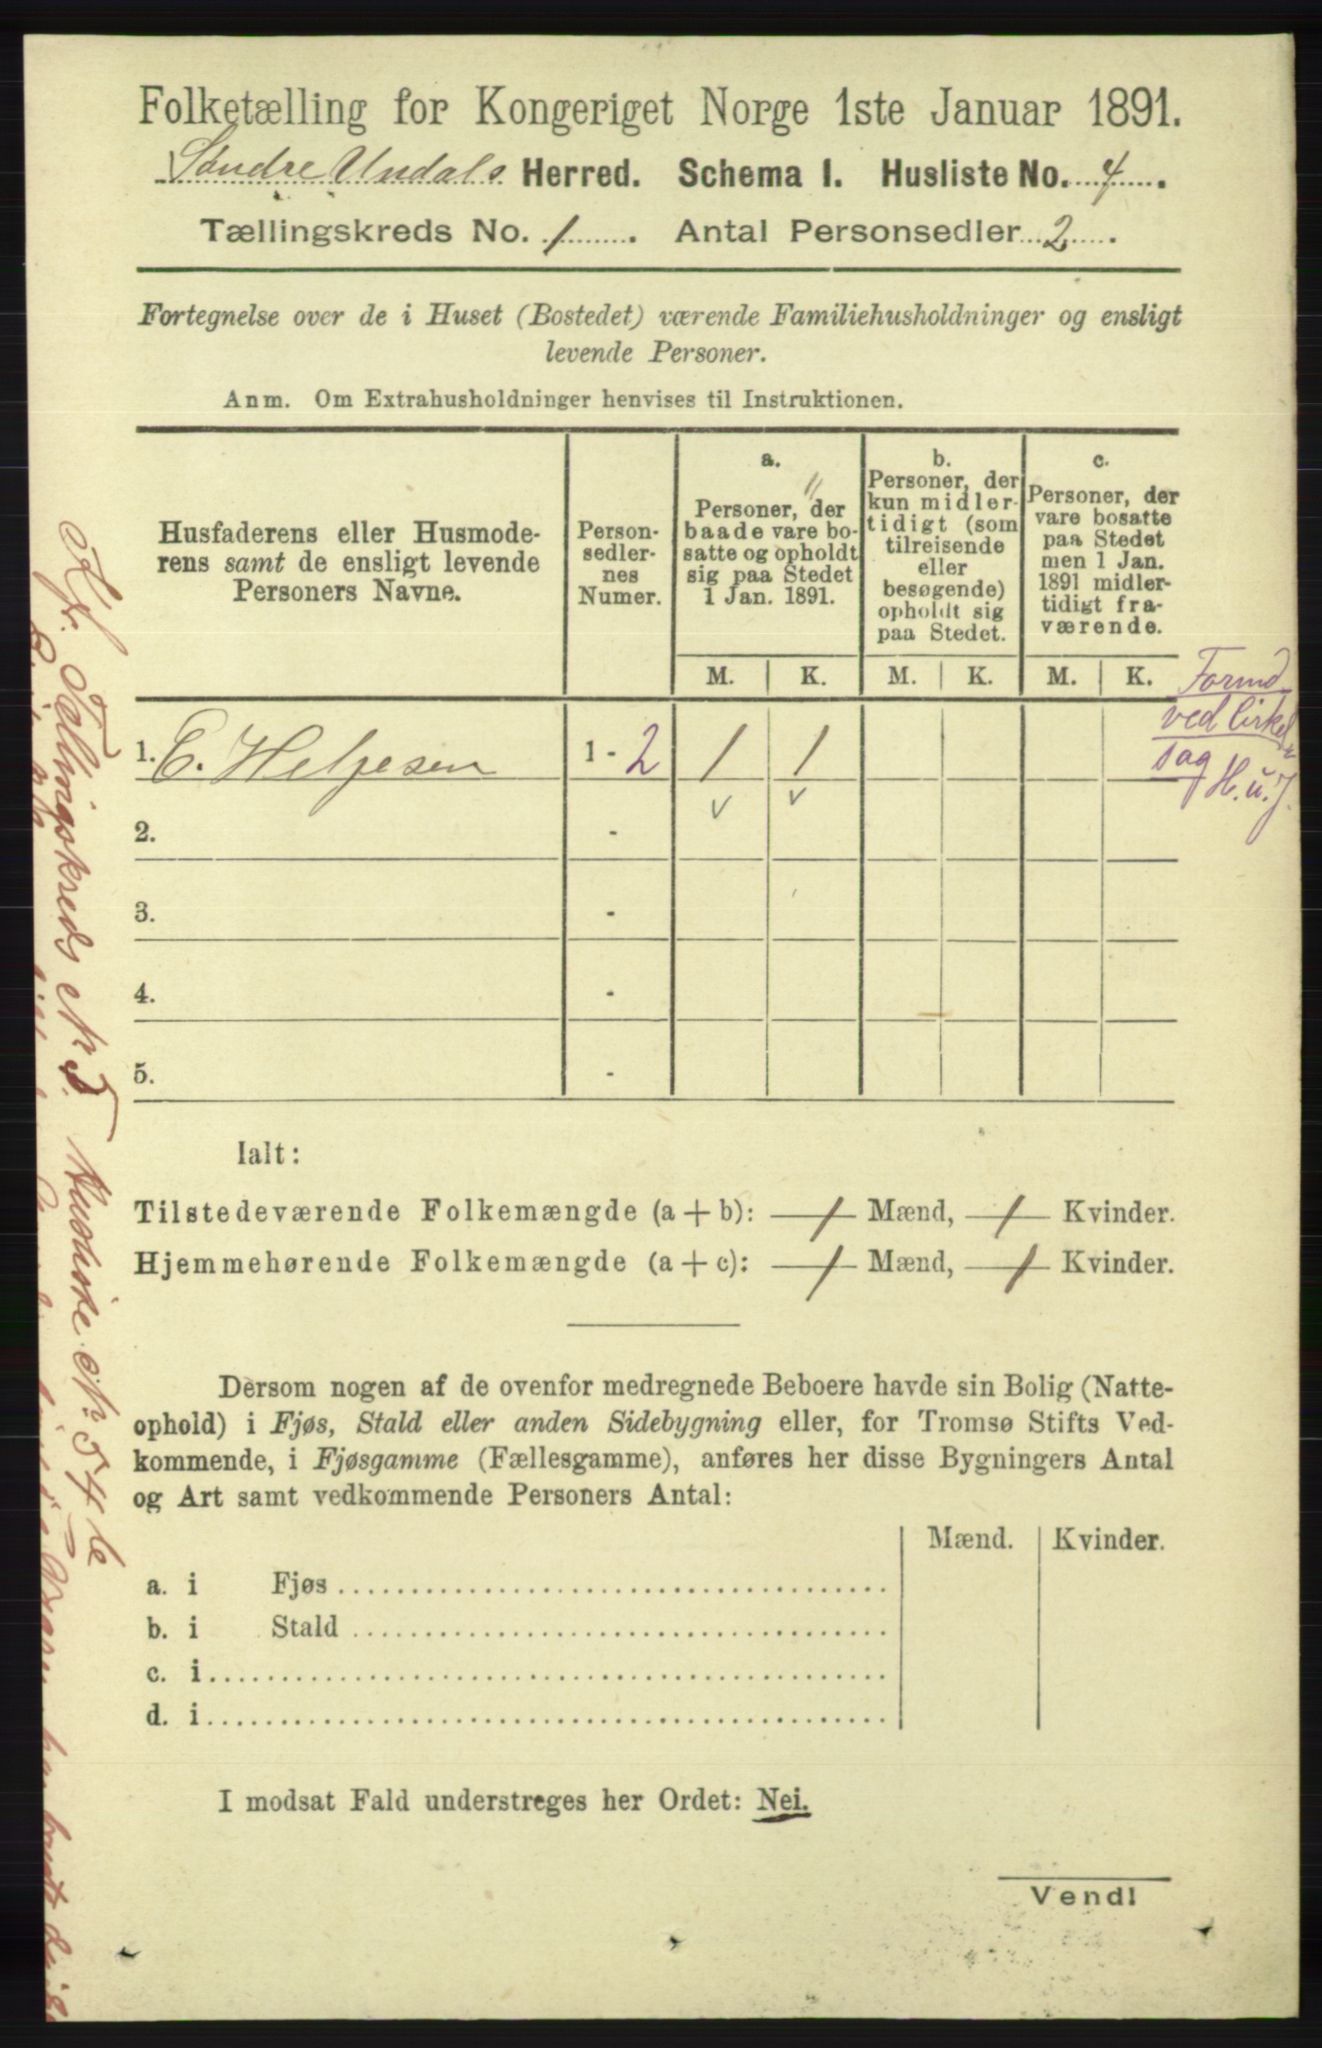 Folketælling for Kongeriget Norge 1ste Januar 1891.
Søndre Undals Herred. Schema I. Husliste No. 4.
Tællingskreds No. 1. Antal Personsedler 2.
Fortegnelse over de i Huset (Bostedet) værende Familiehusholdninger og ensligt
levende Personer.
Anm. Om Extrahusholdninger henvises til Instruktionen.
Husfaderens eller Husmode-
rens samt de ensligt levende
Personers Navne.
Person-
sedler-
nes
Numer.
a.
Personer, der
baade vare bo-
satte og opholdt
sig paa Stedet
1 Jan. 1891.
b.
Personer, der
kun midler-
tidigt (som
tilreisende
eller
besøgende)
opholdt sig
paa Stedet.
c.
Personer, der
vare bosatte
paa Stedet
men 1 Jan.
1891 midler-
tidigt fra-
værende.
M. K. M. K. M. K.
1. E. Heljesen 1 - 2 1 1
2. -
3. -
4. -
5. -
ved Cirkel
sag
H. u. J.
Ialt:
Tilstedeværende Folkemængde (a + b): 1 Mænd, 1 Kvinder.
Hjemmehørende Folkemængde (a + c): 1 Mænd, 1 Kvinder.
Dersom nogen af de ovenfor medregnede Beboere havde sin Bolig (Natte-
ophold) i Fjøs, Stald eller anden Sidebygning eller, for Tromsø Stifts Ved-
kommende, i Fjøsgamme (Fællesgamme), anføres her disse Bygningers Antal
og Art samt vedkommende Personers Antal:
Mænd. Kvinder.
a. i Fjøs
b. i Stald
c. i
d. i
I modsat Fald understreges her Ordet: Nei.
Vend!
Tællingskreds No. 5